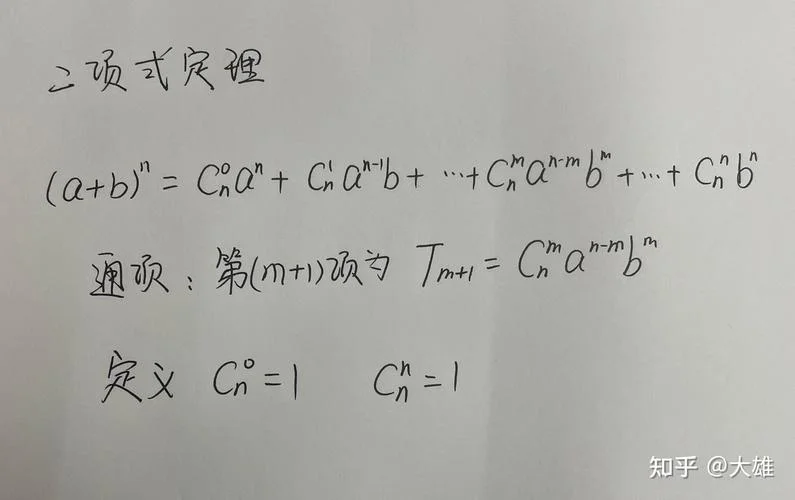 二项式定理
(a+b)ⁿ = Cₙ⁰aⁿ + Cₙ¹aⁿ⁻¹b + ⋯ + Cₙᵐaⁿ⁻ᵐbᵐ + ⋯ + Cₙⁿbⁿ
通项：第(m+1)项为 Tₘ₊₁ = Cₙᵐaⁿ⁻ᵐbᵐ
定义 Cₙ⁰ = 1 Cₙⁿ = 1
知乎 @大雄